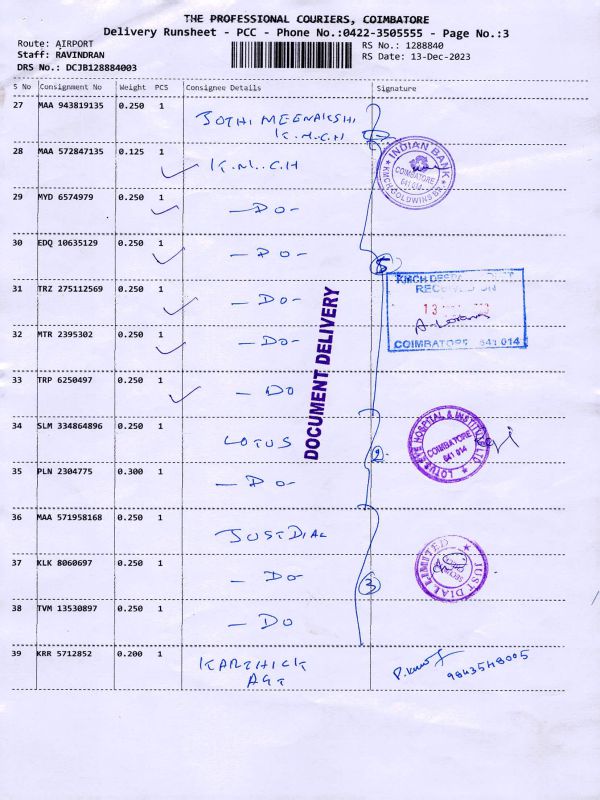 THE PROFESSIONAL COURIERS, COIMBATORE
Delivery Runsheet - PCC - Phone No.:0422-3505555 - Page No.:3
Route: AIRPORT
Staff: RAVINDRAN
DRS No.: DCJB128884003
RS No.: 1288840
RS Date: 13-Dec-2023
S No Consignment No Weight PCS Consignee Details Signature
27 MAA 943819135 0.250 1 JOTHI MEENAKSHI
K.M.C.H
28 MAA 572847135 0.125 1 K.M.C.H
INDIAN BANK
COIMBATORE
641 014
KMCH GOLDWINS BR.
29 MYD 6574979 0.250 1 -DO-
30 EDQ 10635129 0.250 1 -DO-
5
31 TRZ 275112569 0.250 1 -DO-
KMCH
RECEIVED ON
13
COIMBATORE 641 014
32 MTR 2395302 0.250 1 -DO-
DOCUMENT DELIVERY
33 TRP 6250497 0.250 1 -DO
34 SLM 334864896 0.250 1 LOTUS
2
LOTUS EYE HOSPITAL & INSTITUTE LTD
COIMBATORE
641 014
35 PLN 2304775 0.300 1 -DO-
36 MAA 571958168 0.250 1 JUSTDIAL
37 KLK 8060697 0.250 1 -DO
3
JUST DIAL LIMITED
38 TVM 13530897 0.250 1 -DO
39 KRR 5712852 0.200 1 KARTHICK
AGT
9843548005